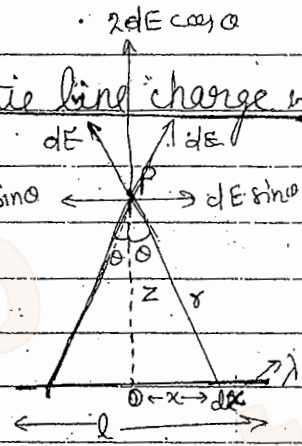 2dE cosθ
tic line charge
dE dE
P
sinθ dE sinθ
θ θ
z r
λ
O ←x→ dx
l